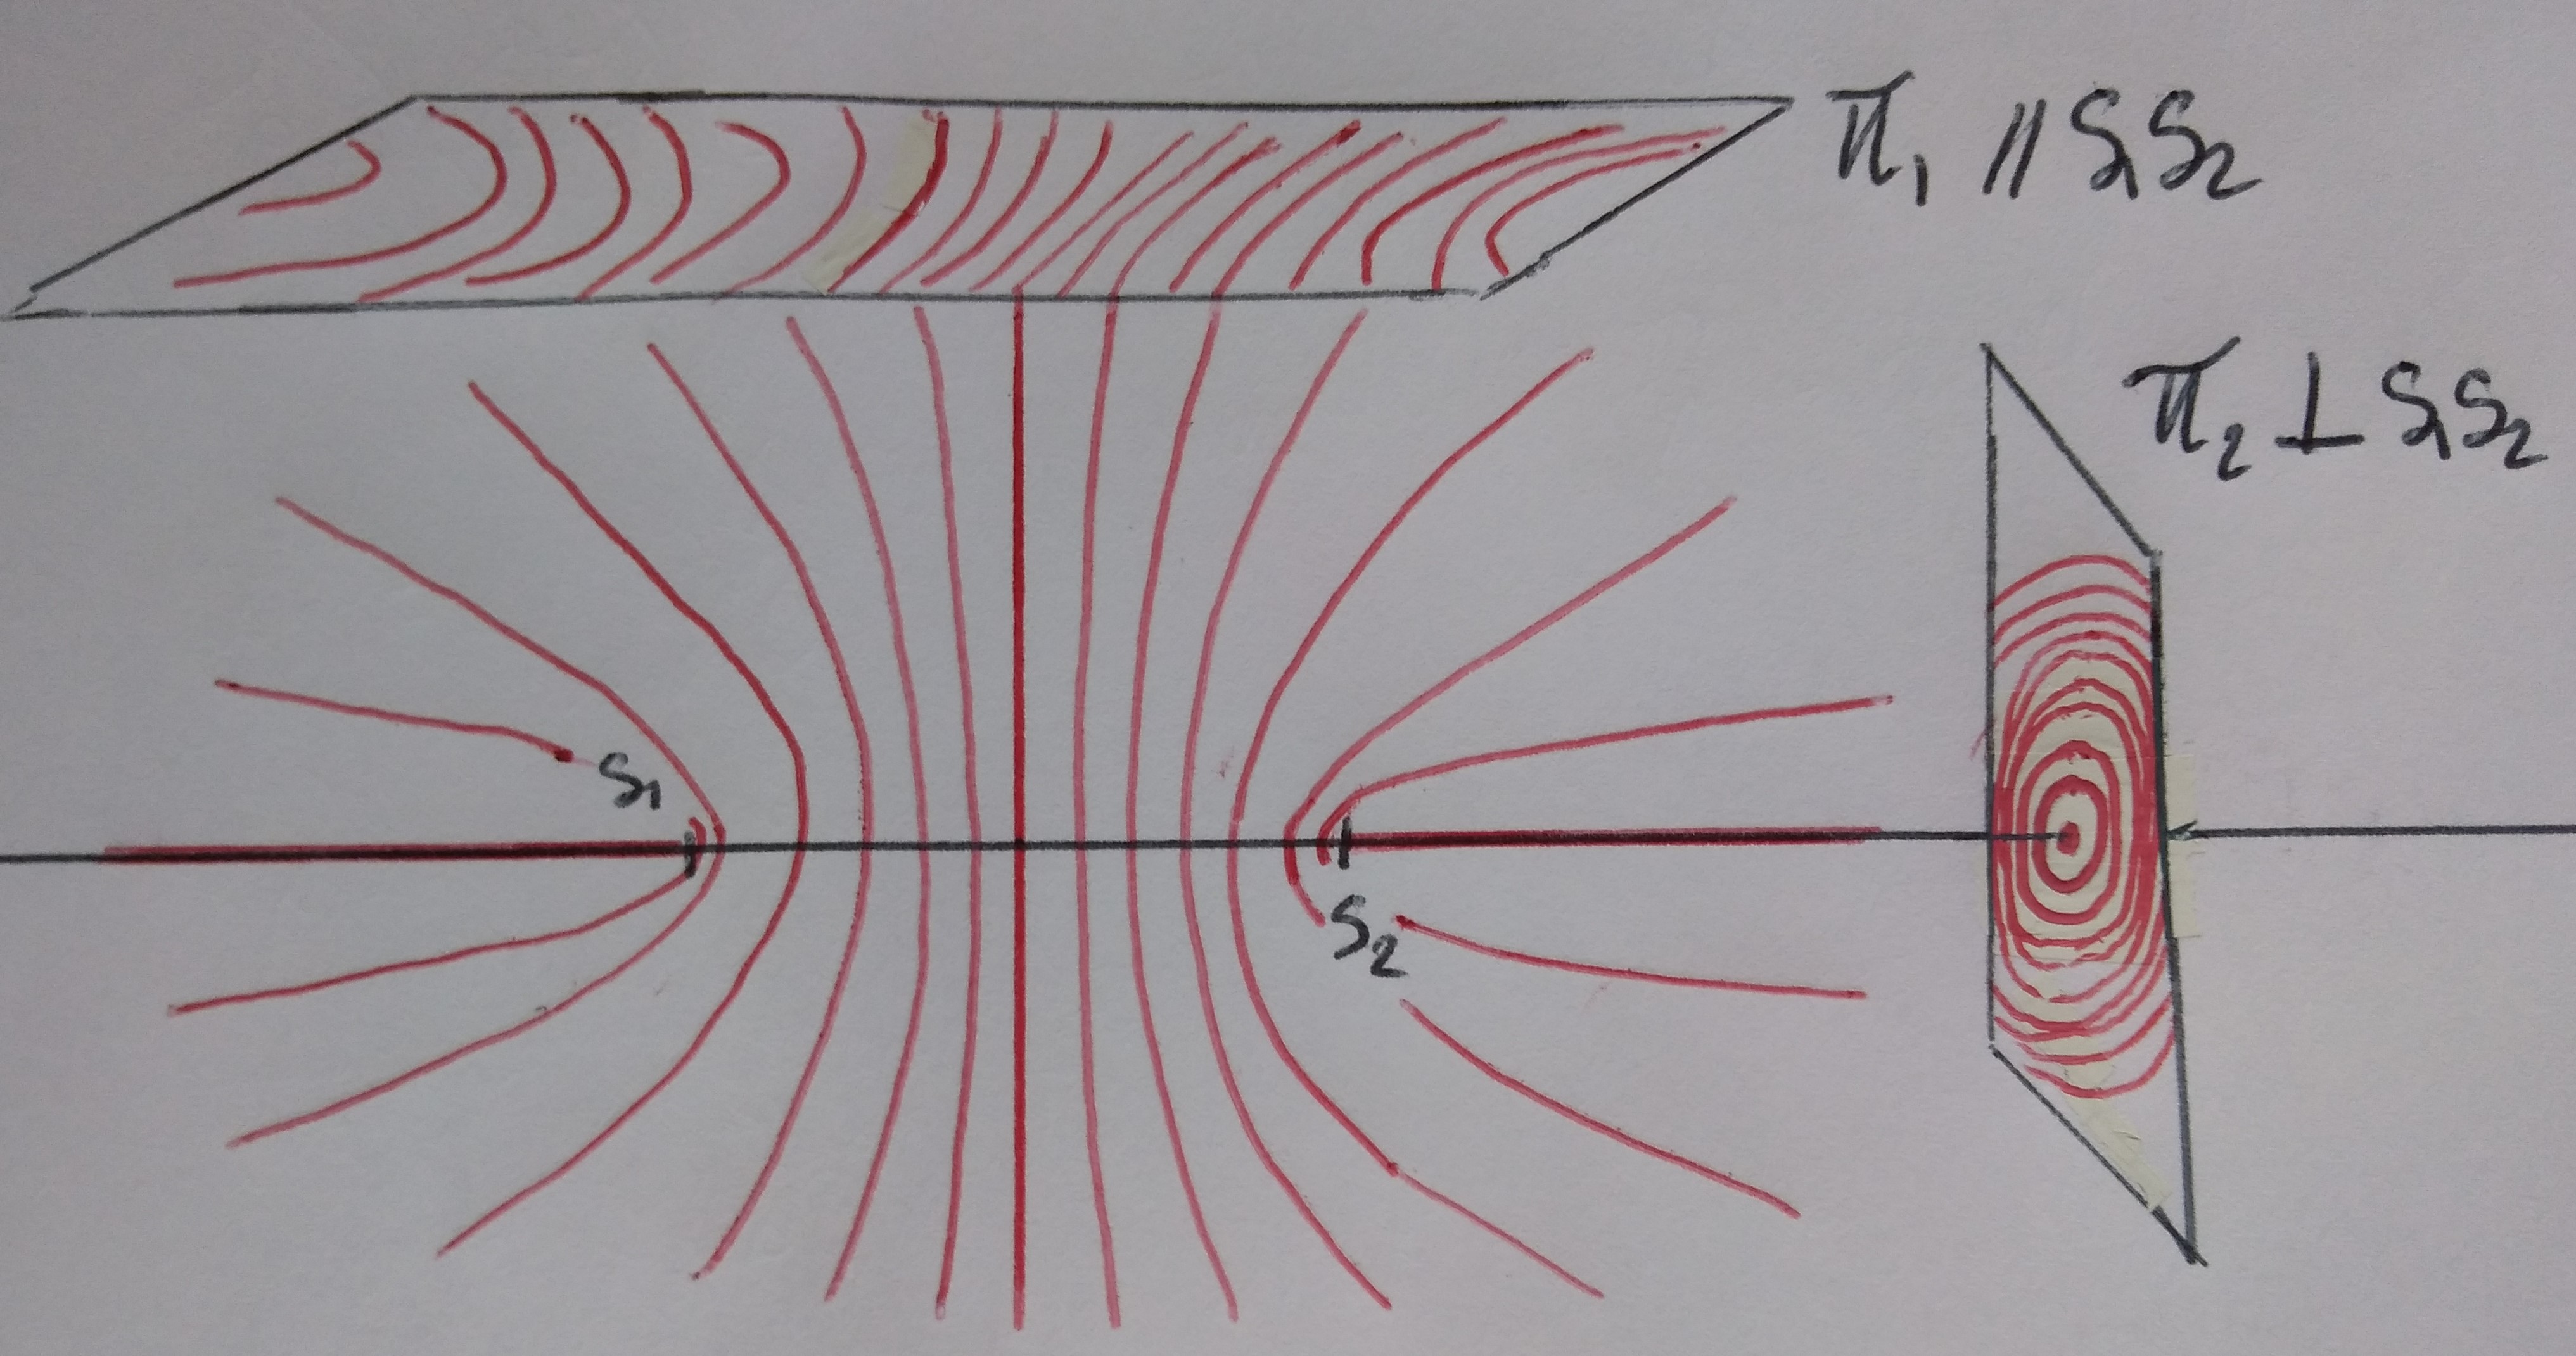 π₁ // S₁S₂
π₂ ⊥ S₁S₂
S₁
S₂